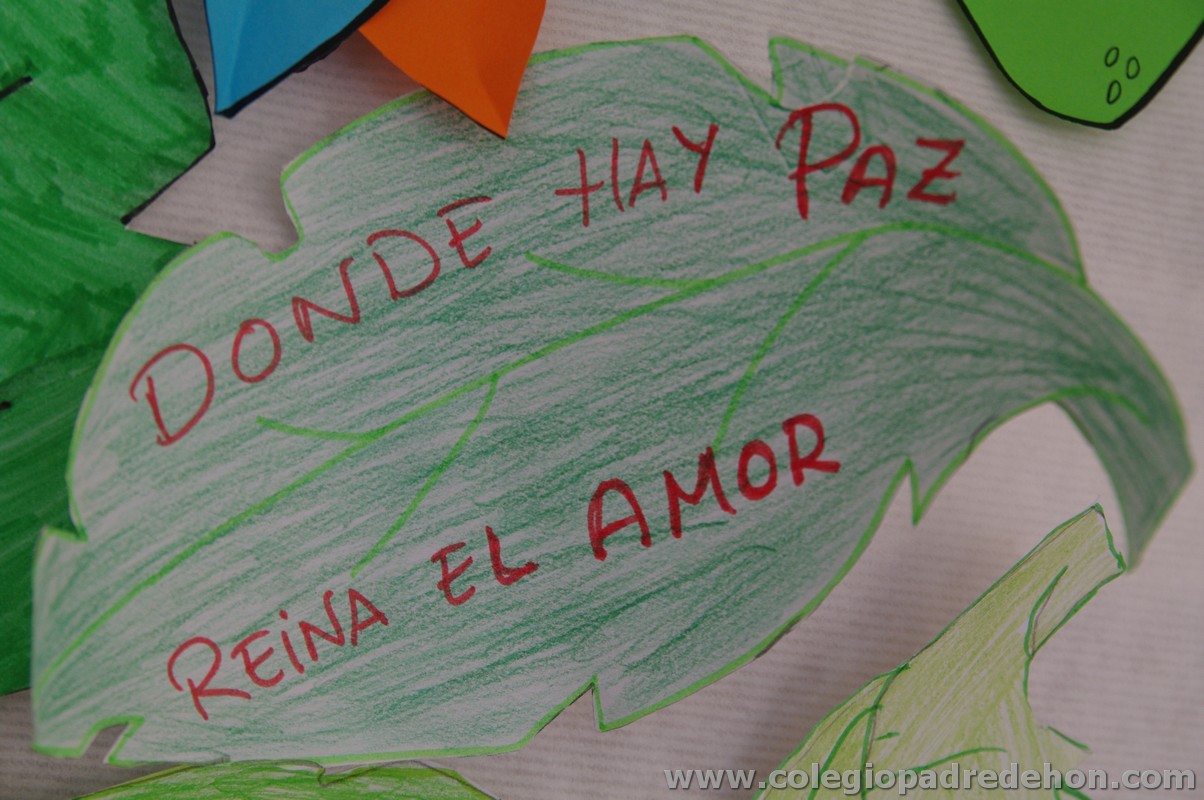 DONDE HAY PAZ
REINA EL AMOR
www.colegiopadredehon.com